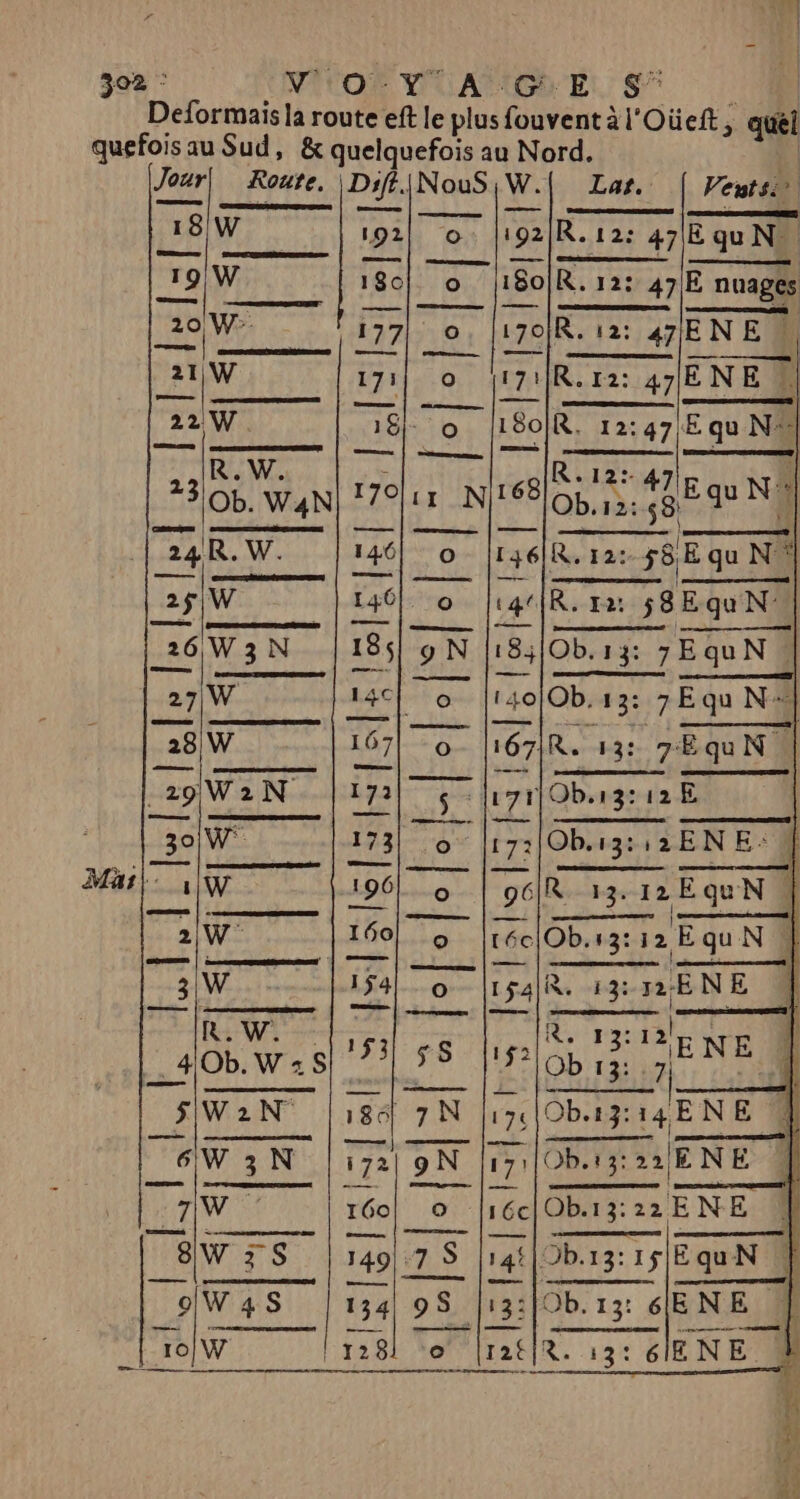 302 VOYAGES
Deformais la route eſt le plus ſouvent à l'Oüeſt, quel
quefois au Sud, & quelquefois au Nord.
Jour| Route. |Diſt.|NouS|W.| Lat. | Vents.
18|W 192| o |192|R. 12: 47|E qu N
19|W 180| o |180|R. 12: 47|E nuages
20|W 177| o |170|R. 12: 47|E N E
21|W 171| o |171|R. 12: 47|E N E
22|W 18| o |180|R. 12: 47|E qu N
R. W. R. 12: 47
23 170|11 N|168 E qu N
Ob. W4N Ob. 12: 58
24|R. W. 146| o |146|R. 12: 58|E qu N
25|W 146| o |146|R. 12: 58|E qu N
26|W 3 N 185| 9 N |183|Ob. 13: 7|E qu N
27|W 140| o |140|Ob. 13: 7|E qu N
28|W 167| o |167|R. 13: 7|E qu N
29|W 2 N 172| 5 |171|Ob. 13: 12|E
30|W 173| o |173|Ob. 13: 12|E N E
Mai 1|W 196| o | 96|R 13. 12|E qu N
2|W 160| o |160|Ob. 13: 12|E qu N
3|W 154| o |154|R. 13: 12|E N E
R. W. R. 13: 12
4 153| 5S |152 E N E
Ob. W 2 S Ob 13: 7
5|W 2 N 180| 7 N | |Ob. 13: 14|E N E
6|W 3 N 172| 9 N |171|Ob. 13: 22|E N E
7|W 160| o |160|Ob. 13: 22|E N E
8|W 3 S 149| 7 S |148|Ob. 13: 15|E qu N
9|W 4 S 134| 9 S |13 |Ob. 13: 6|E N E
10|W 128| o |128|R. 13: 6|E N E